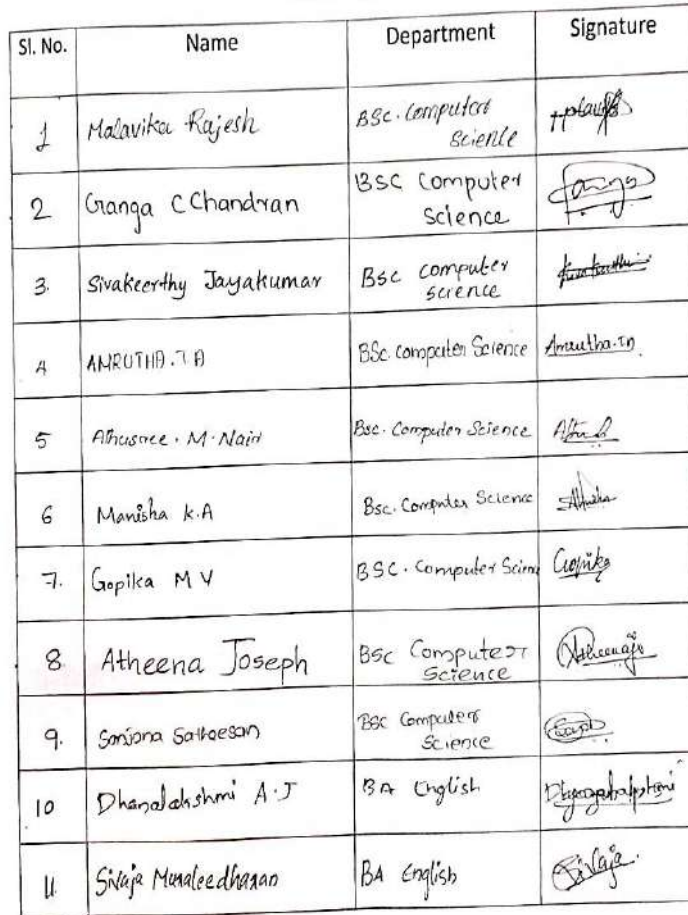 Sl. No. Name Department Signature
1 Malavika Rajesh BSc. Computer
Science
2 Ganga C Chandran BSC Computer
Science
3. Sivakeerthy Jayakumar BSC computer
science
4 AMRUTHA.T.A BSc. computer Science Amrutha.T.A
5 Athusree. M. Nair Bsc. Computer Science
6 Manisha K.A Bsc. Computer Science
7. Gopika M V BSC. Computer Scienc Gopika
8. Atheena Joseph BSC Computer
Science
9. Sanjana Satheesan BSC Computer
Science
10 Dhanalakshmi A.J BA English
11. Sivaja Muraleedharan BA English Sivaja.